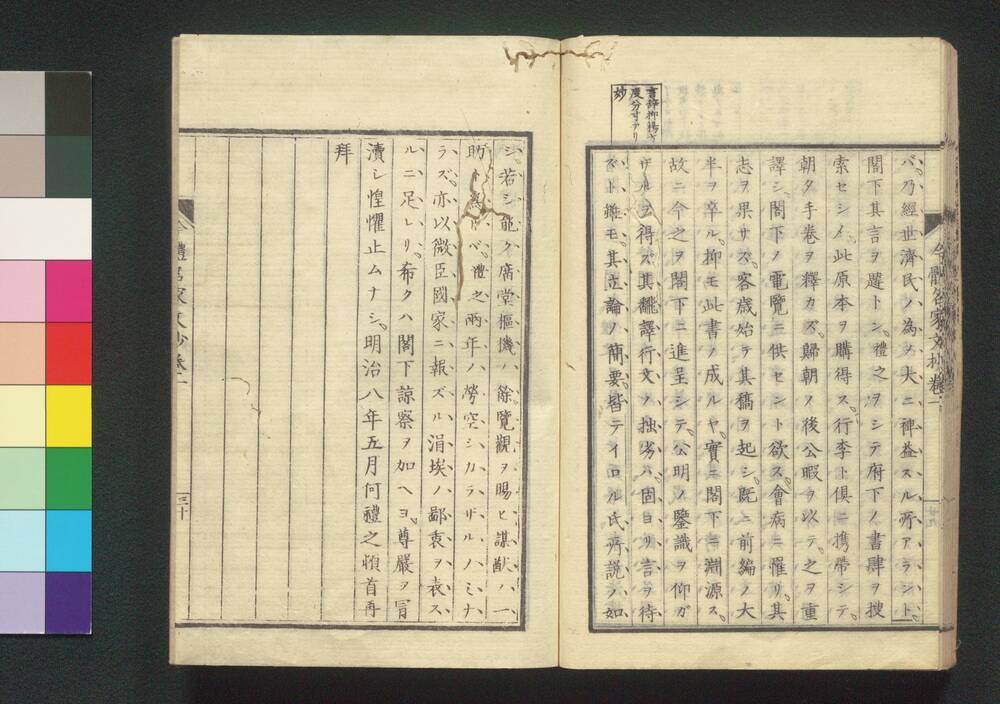 バ、乃經世濟民ノ為メ大ニ裨益スル所アラント。
閣下其言ヲ韙トシ。禮之ヲシテ府下ノ書肆ヲ捜
索セシメ、此原本ヲ購得ス。行李ト倶ニ携帶シテ。
朝夕手巻ヲ釋カズ。歸朝ノ後公暇ヲ以テ。之ヲ重
譯シ。閣下ノ電覽ニ供セント欲ス。會病ニ罹リ。其
志ヲ果サズ。客歳始テ其稿ヲ起シ。既ニ前編ノ大
半ヲ卒ル。抑モ此書ノ成ルヤ。實ニ閣下ニ淵源ス。
故ニ今之ヲ閣下ニ進呈シテ。公明ノ鑒識ヲ仰ガ
ザルヲ得ズ。其飜譯行文ノ拙劣ハ固ヨリ言ヲ待
ズト雖モ。其立論ノ簡要。皆テイロル氏所説ノ如
書辞抑揚
度分寸アリ
妙
シ。若シ能ク廟堂樞機ノ餘覽觀ヲ賜ヒ謀猷ノ一
助ト為サバ。禮之兩年ノ勞空シカラザルノミナ
ラズ。亦以微臣國家ニ報ズル涓埃ノ鄙衷ヲ表ス
ルニ足レリ。希クハ閣下諒察ヲ加ヘヨ。尊嚴ヲ冒
瀆シ惶懼止ムナシ。明治八年五月何禮之頓首再
拜
今體名家文抄巻一
今體名家文抄巻一
三十